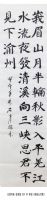 峩眉山月半輪秋影入平羌江
水流夜發清溪向三峽思君不
見下渝州